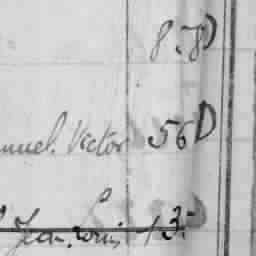 8.8D
nuel. Victor 56D
Jean, Louis 13.